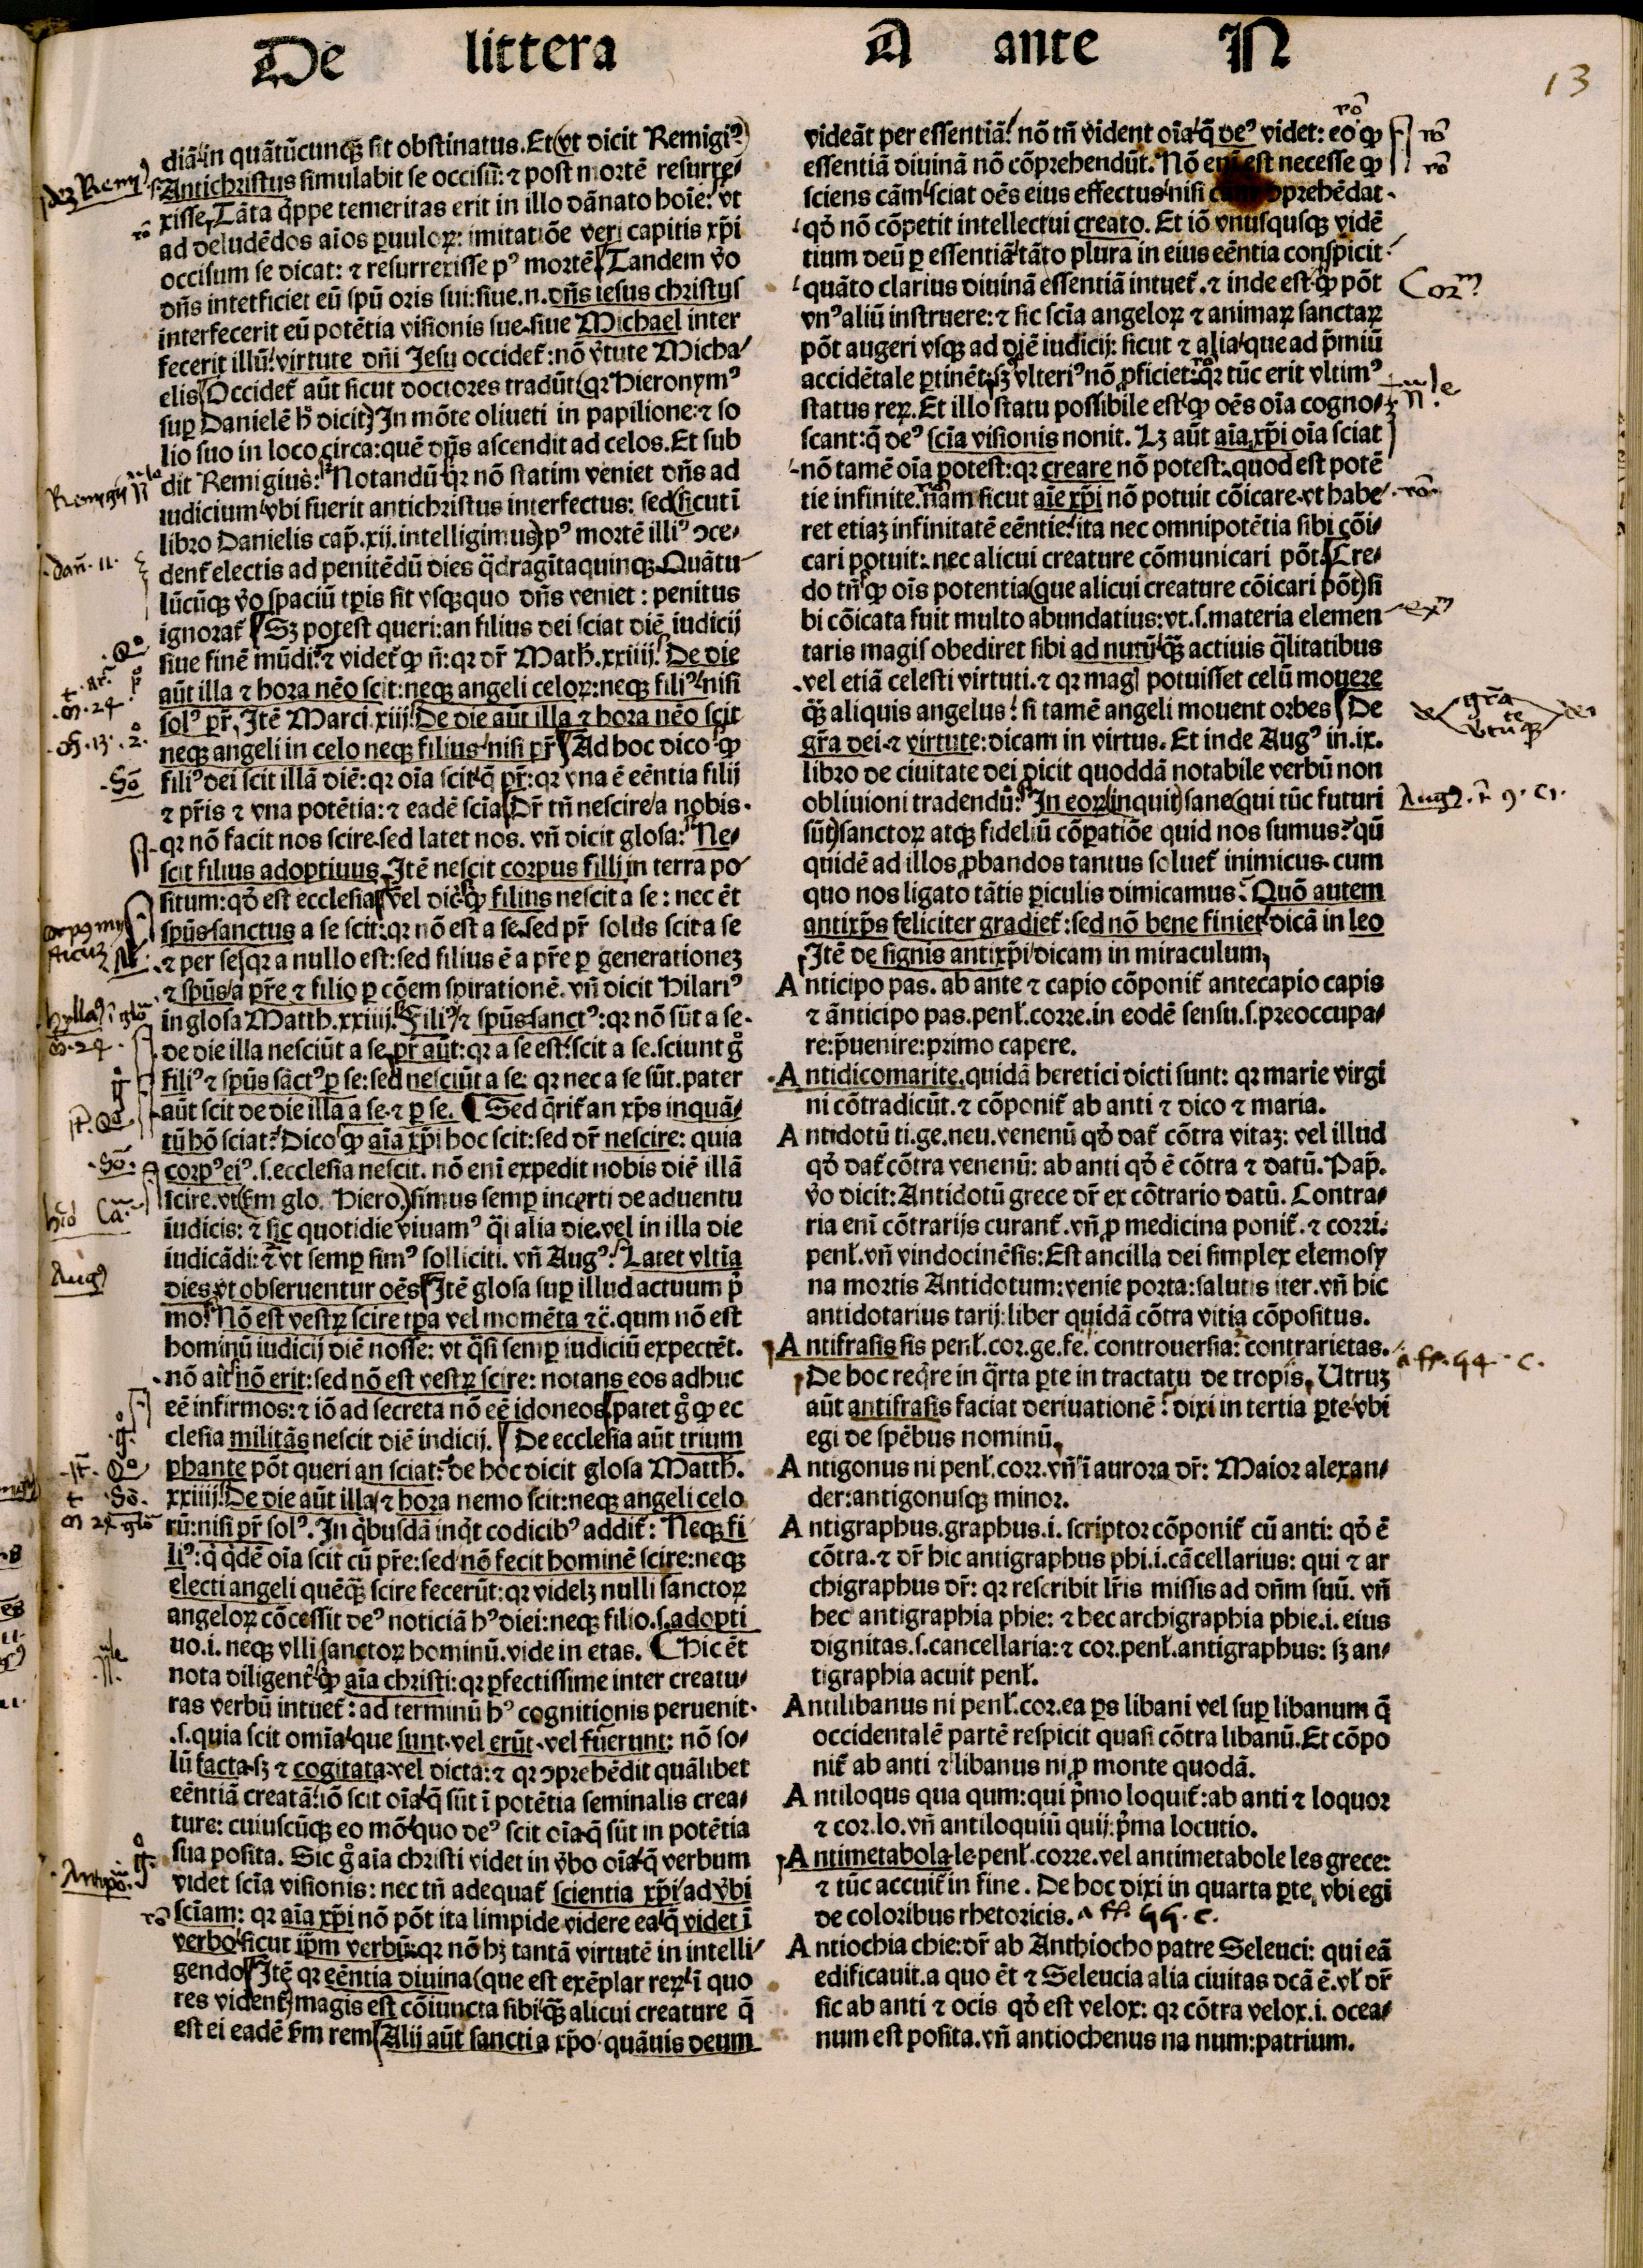 De littera A ante N
13
diā in quātūcunq̄ sit obstinatus. Et vt dicit Remigiꝰ
Antichristus simulabit se occisū: ⁊ post mortē resurre⸗
xisse, Tāta q̇ppe temeritas erit in illo dānato hoīe: vt
ad deludēdos aīos ꝑuuloꝝ: imitatiōe veri capitis xp̄i
occisum se dicat: ⁊ resurrexisse pꝰ mortē Tandem v̇o
dn̄s intetficiet eū spū oris sui: siue.n.dn̄s iesus christus
interfecerit eū potētia visionis sue siue Michael inter
fecerit illū: virtute dn̄i Jesu occidet̄: nō v̇tute Micha⸗
elis Occidet̄ aūt sicut doctores tradūt (qꝛ Hieronymꝰ
suꝑ Danielē h̄ dicit) In mōte oliueti in papilione: ⁊ so
lio suo in loco circa: quē dn̄s ascendit ad celos. Et sub
dit Remigius: Notandū qꝛ nō statim veniet dn̄s ad
iudicium vbi fuerit antichristus interfectus: sed sicut ī
libro Danielis cap̄.xij.intelligimus pꝰ mortē illiꝰ ↄce⸗
dent̄ electis ad penitēdū dies q̈dragītaquinqꝫ Quātu
lūcūqꝫ v̇o spaciū tꝑis sit vsqꝫquo dn̄s veniet: penitus
ignorat̄ Sꝫ potest queri: an filius dei sciat diē iudicij
siue finē mūdi: ⁊ videt̄ ꝙ n̄: qꝛ dr̄ Math̄.xxiiij. De die
aūt illa ⁊ hora nēo scit: neqꝫ angeli celoꝝ: neqꝫ filiꝰ nisi
solꝰ pr̄, Itē Marci xiij. De die aūt illa ⁊ hora nēo scit
neqꝫ angeli in celo neqꝫ filius nisi pr̄ Ad hoc dico ꝙ
filiꝰ dei scit illā diē: qꝛ oīa scit q̄ pr̄: qꝛ vna ē eēntia filij
⁊ pr̄is ⁊ vna potētia: ⁊ eadē scīa Dr̄ tn̄ nescire a nobis.
qꝛ nō facit nos scire sed latet nos. vn̄ dicit glosa: Ne⸗
scit filius adoptiuus, Itē nescit corpus filij in terra po
situm: qd̄ est ecclesia vel dic̄ ꝙ filius nescit a se: nec ēt
spūs sanctus a se scit: qꝛ nō est a se. sed pr̄ solus scit a se
⁊ per se qꝛ a nullo est: sed filius ē a pr̄e ꝑ generationeꝫ
⁊ spūs a pr̄e ⁊ filio ꝑ cōem spirationē. vn̄ dicit Hilariꝰ
in glosa Matth.xxiiij. Filiꝰ ⁊ spūs sanctꝰ: qꝛ nō sūt a se.
de die illa nesciūt a se pr̄ aūt: qꝛ a se est: scit a se. sciunt g̊
filiꝰ ⁊ spūs sāctꝰ ꝑ se: sed nesciūt a se: qꝛ nec a se sūt. pater
aūt scit de die illa a se ⁊ ꝑ se. ¶ Sed q̄rit̄ an xp̄s inquā⸗
tū hō sciat? Dico ꝙ aīa xp̄i hoc scit: sed dr̄ nescire: quia
corpꝰ eiꝰ.s. ecclesia nescit. nō enī expedit nobis diē illā
scire. vt (ẜm glo. Hiero.) simus semꝑ incerti de aduentu
iudicis: ⁊ sic quotidie viuamꝰ q̄i alia die. vel in illa die
iudicādi: ⁊ vt semꝑ simꝰ solliciti. vn̄ Augꝰ. Latet vltīa
dies vt obseruentur oēs Itē glosa suꝑ illud actuum p̄
mo: Nō est vestꝝ scire tꝑa vel momēta ⁊c̄. qum nō est
hominū iudicij diē nosse: vt q̄si semꝑ iudiciū expectēt.
nō ait nō erit: sed nō est vestꝝ scire: notans eos adhuc
eē infirmos: ⁊ iō ad secreta nō eē idoneos patet g̊ ꝙ ec
clesia militās nescit diē indicij. De ecclesia aūt trium
phante pōt queri an sciat: de hoc dicit glosa Matth̄.
xxiiij. De die aūt illa ⁊ hora nemo scit: neqꝫ angeli celo
rū: nisi pr̄ solꝰ. In q̇busdā inq̇t codicibꝰ addit̄: Neqꝫ fi
liꝰ: q̇ q̇dē oīa scit cū pr̄e: sed nō fecit hominē scire: neqꝫ
electi angeli quēq̄ꝫ scire fecerūt: qꝛ videlꝫ nulli sanctoꝝ
angeloꝝ cōcessit deꝰ noticiā hꝰ diei: neqꝫ filio.s. adopti
uo.i. neqꝫ vlli sanctoꝝ hominū. vide in etas. ¶ Hic ēt
nota diligent̄ ꝙ aīa christi: qꝛ ꝑfectissime inter creatu⸗
ras verbū intuet̄: ad terminū hꝰ cognitionis peruenit.
.s. quia scit omīa que sunt. vel erūt. vel fuerunt: nō so⸗
lū facta sꝫ ⁊ cogitata vel dicta: ⁊ qꝛ ↄprehēdit quālibet
eēntiā creatā: iō scit oīa q̄ sūt ī potētia seminalis crea⸗
ture: cuiuscūqꝫ eo mō quo deꝰ scit oīa q̄ sūt in potētia
sua posita. Sic g̊ aīa christi videt in v̇bo oīa q̄ verbum
videt scīa visionis: nec tn̄ adequat̄ scientia xp̄i ad v̇bi
scīam: qꝛ aīa xp̄i nō pōt ita limpide videre ea q̄ videt ī
verbo sicut ip̄m verbū: qꝛ nō hꝫ tantā virtutē in intelli⸗
gendo Itē qꝛ eēntia diuina (que est exēplar reꝝ ī quo
res vident̄) magis est cōiuncta sibi q̄ꝫ alicui creature q̄
est ei eadē ẜm rem Alij aūt sancti a xp̄o quāuis deum
videāt per essentiā: nō tn̄ vident oīa q̄ deꝰ videt: eo ꝙ
essentiā diuinā nō cōprehendūt. Nō enī est necesse ꝙ
sciens cām sciat oēs eius effectus nisi prehēdat.
qd̄ nō cōpetit intellectui creato. Et iō vnusqusqꝫ vidē
tium deū ꝑ essentiā tāto plura in eius eēntia conspicit
quāto clarius diuinā essentiā intuet̄. ⁊ inde est ꝙ pōt
vnꝰ aliū instruere: ⁊ sic scīa angeloꝝ ⁊ animaꝝ sanctaꝝ
pōt augeri vsqꝫ ad diē iudicij: sicut ⁊ alia que ad p̄miū
accidētale ꝑtinēt: sꝫ vlteriꝰ nō ꝓficiet: qꝛ tūc erit vltimꝰ
status reꝝ. Et illo statu possibile est ꝙ oēs oīa cogno⸗
scant: q̄ deꝰ scīa visionis nonit. Lꝫ aūt aīa xp̄i oīa sciat
nō tamē oīa potest: qꝛ creare nō potest: quod est potē
tie infinite. nam sicut aīe xp̄i nō potuit cōicare vt habe⸗
ret etiaꝫ infinitatē eēntie: ita nec omnipotētia sibi cōi⸗
cari potuit: nec alicui creature cōmunicari pōt Cre⸗
do tn̄ ꝙ oīs potentia (que alicui creature cōicari pōt) si
bi cōicata fuit multo abundatius: vt.s. materia elemen
taris magis obediret sibi ad nutū q̄ꝫ actiuis q̄litatibus
vel etiā celesti virtuti. ⁊ qꝛ magꝭ potuisset celū mouere
q̄ꝫ aliquis angelus: si tamē angeli mouent orbes De
gr̄a dei ⁊ virtute: dicam in virtus. Et inde Augꝰ in.ix.
libro de ciuitate dei dicit quoddā notabile verbū non
obliuioni tradendū: In eoꝝ (inquit) sane (qui tūc futuri
sūt) sanctoꝝ atqꝫ fideliū cōꝑatiōe quid nos sumus? qū
quidē ad illos ꝓbandos tantus soluet̄ inimicus cum
quo nos ligato tātis ꝑiculis dimicamus: Quō autem
antixp̄s feliciter gradiet̄: sed nō bene finiet dicā in leo
Itē de signis antixp̄i dicam in miraculum,
Anticipo pas. ab ante ⁊ capio cōponit̄ antecapio capis
⁊ ānticipo pas. penl̄. corre. in eodē sensu.s. preoccupa⸗
re: p̄uenire: primo capere.
Antidicomarite. quidā heretici dicti sunt: qꝛ marie virgi
ni cōtradicūt. ⁊ cōponit̄ ab anti ⁊ dico ⁊ maria.
Antidotū ti. ge. neu. venenū qd̄ dat̄ cōtra vitaꝫ: vel illud
qd̄ dat̄ cōtra venenū: ab anti qd̄ ē cōtra ⁊ datū. Pap̄.
v̇o dicit: Antidotū grece dr̄ ex cōtrario datū. Contra⸗
ria enī cōtrarijs curant̄. vn̄ ꝓ medicina ponit̄. ⁊ corri.
penl̄. vn̄ vindocinēsis: Est ancilla dei simplex elemosy
na mortis Antidotum: venie porta: salutis iter. vn̄ hic
antidotarius tarij: liber quidā cōtra vitia cōpositus.
Antifrasis sis penl̄. cor. ge. fe. controuersia: contrarietas.
De hoc req̇re in q̄rta ꝑte in tractatu de tropis, Utruꝫ
aūt antifrasis faciat deriuationē: dixi in tertia ꝑte vbi
egi de spēbus nominū,
Antigonus ni penl̄. corr. vn̄ ī aurora dr̄: Maior alexan⸗
der: antigonusqꝫ minor.
Antigraphus. graphus.i. scriptor cōponit̄ cū anti: qd̄ ē
cōtra. ⁊ dr̄ hic antigraphus phi.i. cācellarius: qui ⁊ ar
chigraphus dr̄: qꝛ rescribit lr̄is missis ad dn̄m suū. vn̄
hec antigraphia phie: ⁊ hec archigraphia phie.i. eius
dignitas.s. cancellaria: ⁊ cor. penl̄. antigraphus: sꝫ an⸗
tigraphia acuit penl̄.
Antilibanus ni penl̄. cor. ea ꝑs libani vel suꝑ libanum q̄
occidentalē partē respicit quasi cōtra libanū. Et cōpo
nit̄ ab anti ⁊ libanus ni ꝓ monte quodā.
Antiloqus qua qum: qui p̄mo loquit̄: ab anti ⁊ loquor
⁊ cor. lo. vn̄ antiloquiū quij: p̄ma locutio.
Antimetabola le penl̄. corre. vel antimetabole les grece:
⁊ tūc accuit̄ in fine. De hoc dixi in quarta ꝑte, vbi egi
de coloribus rhetoricis.
Antiochia chie: dr̄ ab Anthiocho patre Seleuci: qui eā
edificauit. a quo ēt ⁊ Seleucia alia ciuitas dcā ē. vl̄ dr̄
sic ab anti ⁊ ocis qd̄ est velox: qꝛ cōtra velox.i. ocea⸗
num est posita. vn̄ antiochenus na num: patrium.